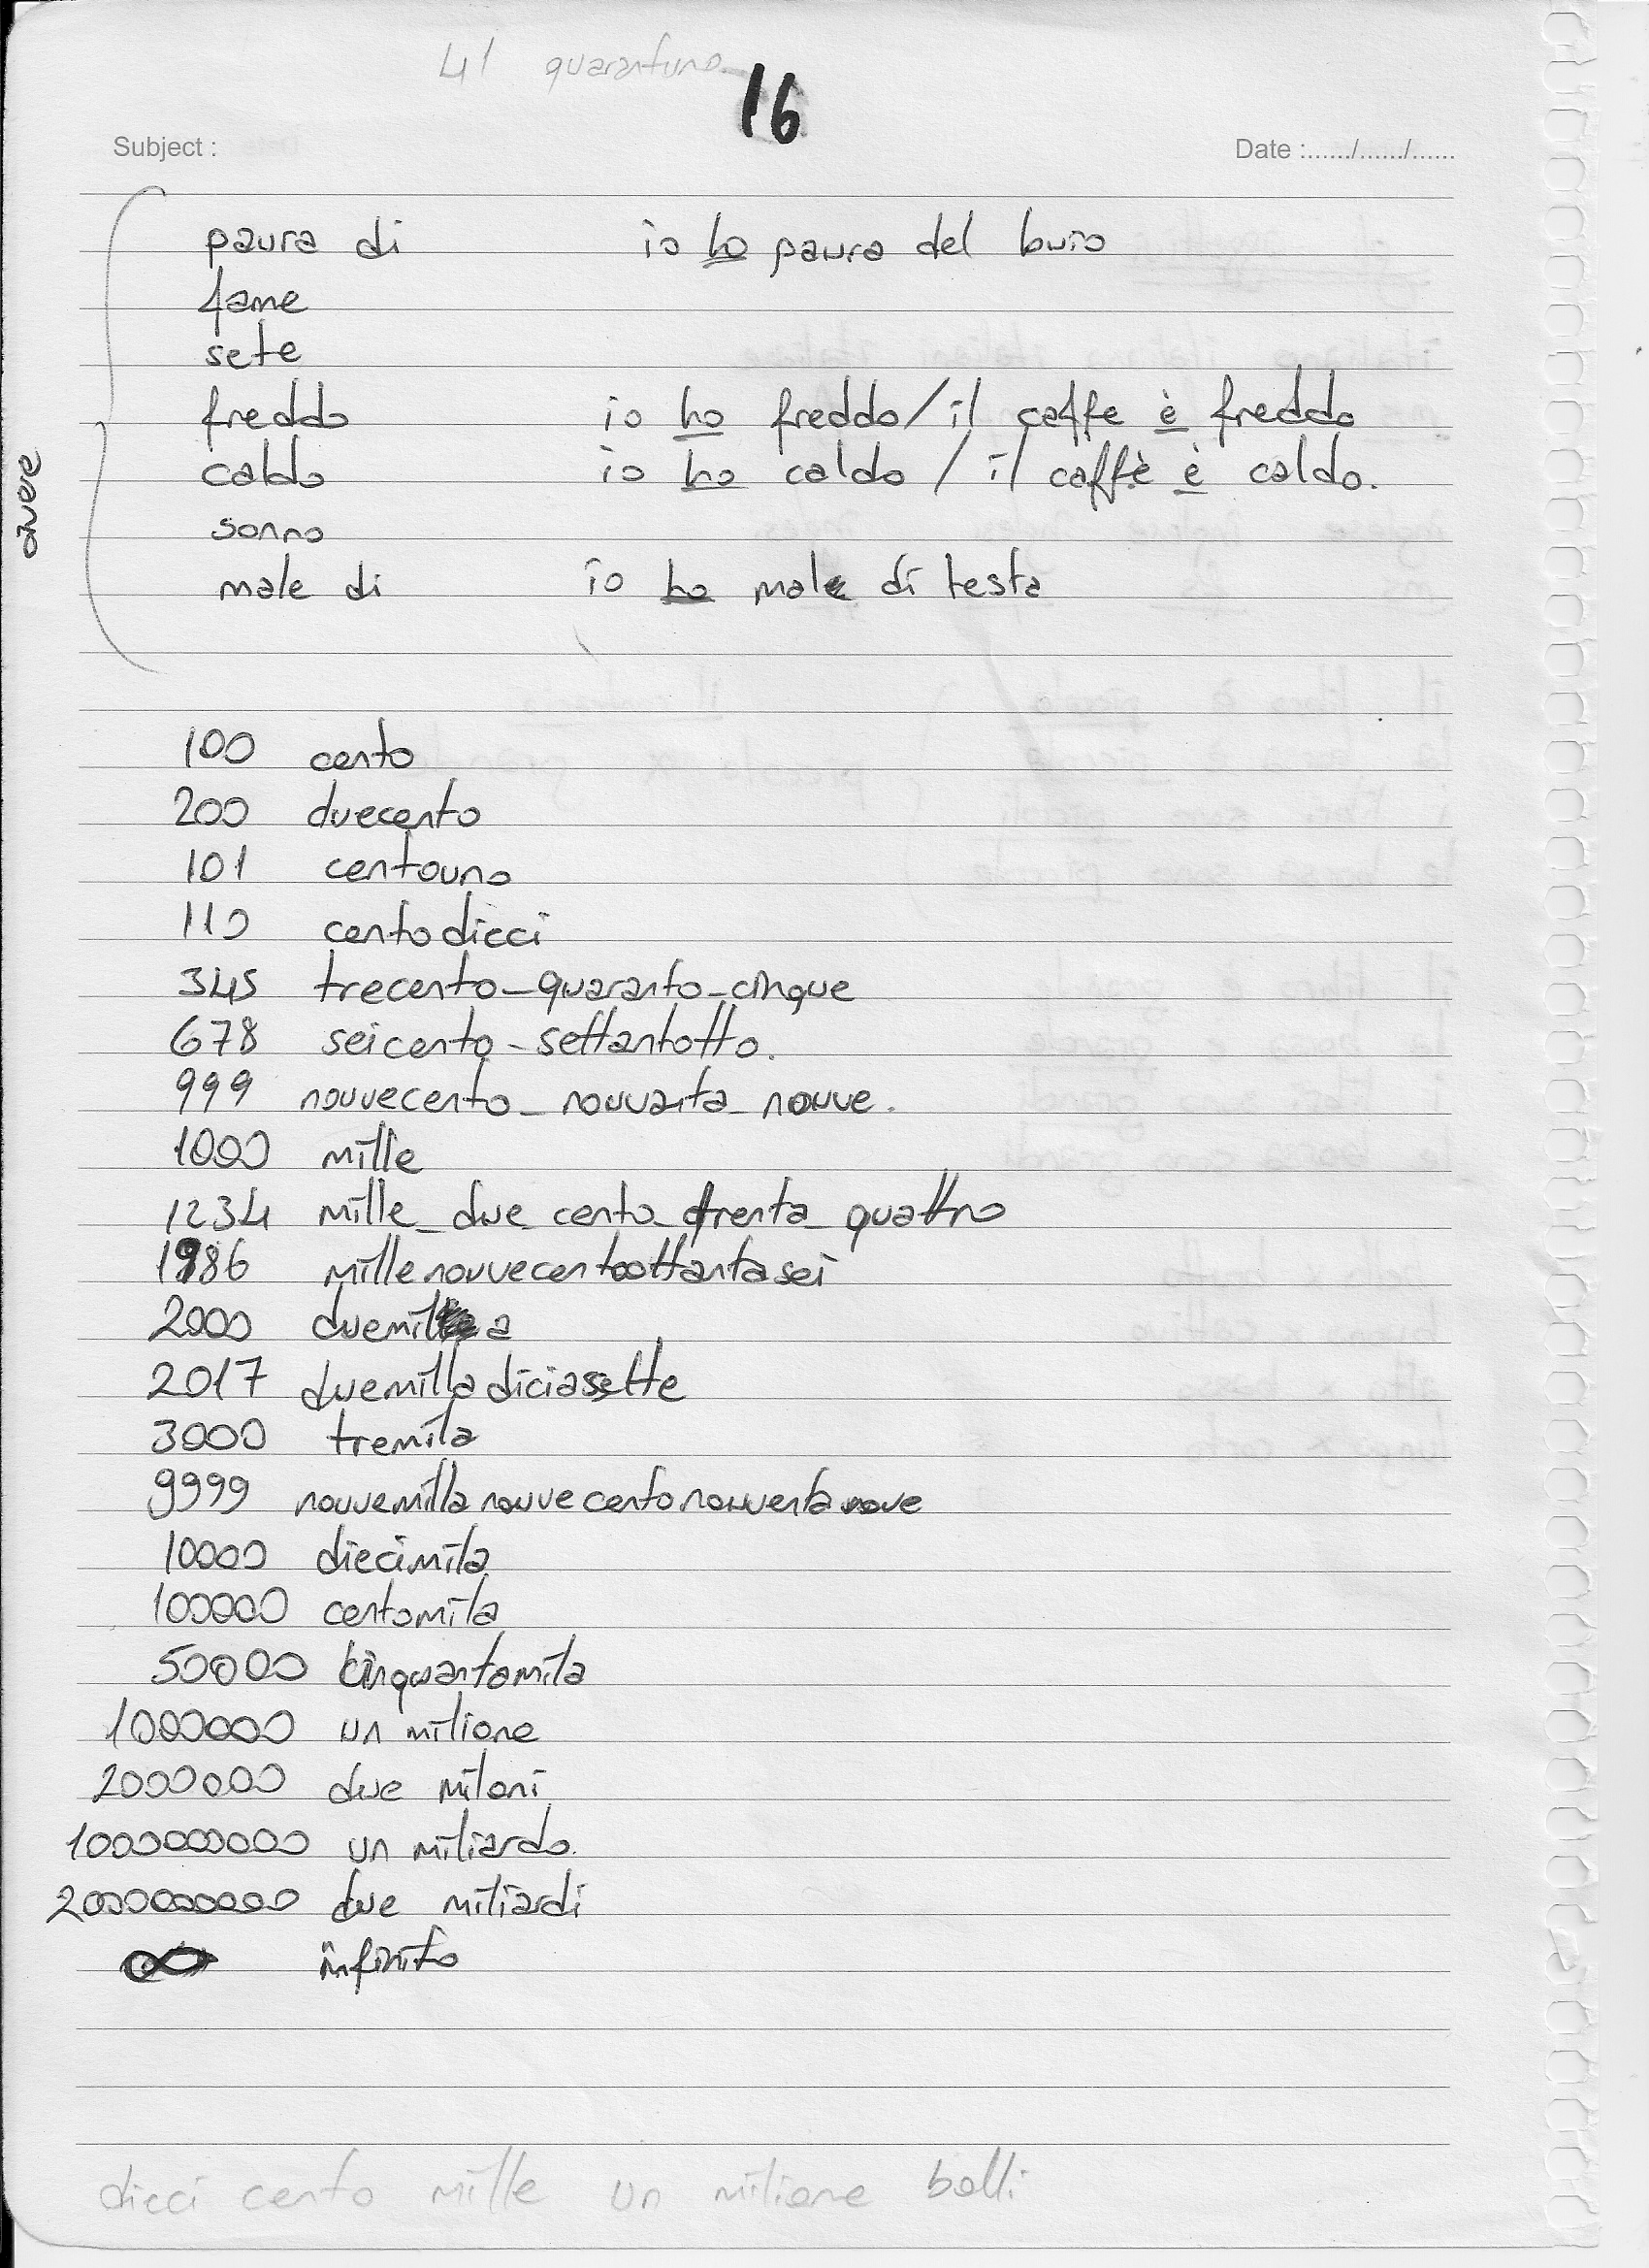 41 quarantuno
16
Subject : Date :....../....../......
paura di io ho paura del buio
fame
sete
freddo io ho freddo / il caffe è freddo
caldo io ho caldo / il caffè è caldo.
avere
sonno
male di io ho male di testa
100 cento
200 duecento
101 centouno
110 centodieci
345 trecento-quaranto-cinque
678 seicento-settantotto.
999 nouvecento-nouvanta-nouve.
1000 mille
1234 mille-due cento-trenta-quattro
1986 millenouvecentoottantasei
2000 duemila
2017 duemilladiciasette
3000 tremila
9999 nouvemillanouvecentonouventanove
10000 diecimila
100000 centomila
50000 cinquantamila
1000000 un milione
2000000 due miloni
1000000000 un miliardo.
2000000000 due miliardi
∞ infinito
dieci cento mille un milione balli